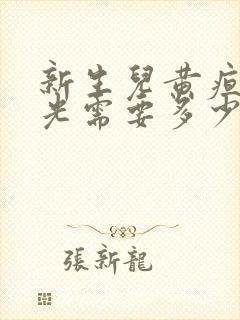 新生兒黃疸
光需要多少
張新龍